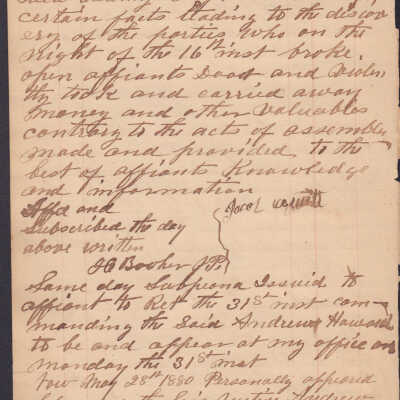 certain facts leading to the discov
ery of the parties who on the
night of the 16th inst broke
open affiants Door and violen
tly took and carried away
money and other valuables
contrary to the acts of assembly
made and provided to the
best of affiants Knowledge
and information
and
Subscribed the day
above written
J C Booker J.P.
Jacob
Same day Subpoena Issuid to
affiant to Ret the 31st inst com-
manding the Said Andrew Howard
to be and appear at my office on
monday the 31st inst
tow May 28th 1880 Personally appeared